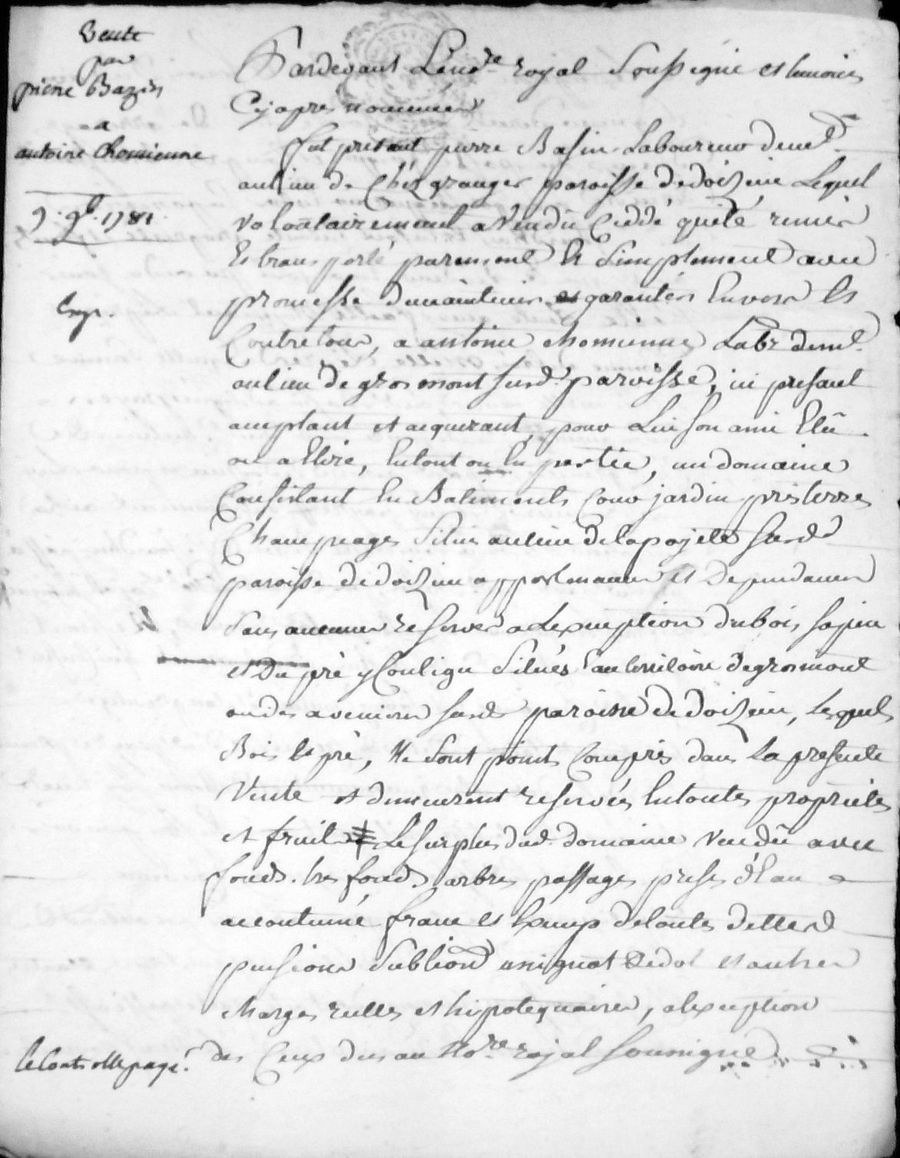 Vente
par
pierre Bazin
a
antoine Chomienne
9. 9b 1781
Exp.
Pardevant Le no.re royal Soussigné et temoins
Cy apres nommés
fut présent pierre Basin Laboureur demt.
au lieu de Chés granger paroisse de doizieu Lequel
volontairement a Vendu Ceddé quité remis
Et transporté purement Et Simplement avec
promesse de maintenir et garantir Envers Et
Contre tous, a antoine Chomienne Labr demt.
au lieu de gros mont Surd. paroisse, ici présent
acceptant et acquerant pour Lui Son ami Elû
ou a Elire, En tout ou En partie, un domaine
Consistant En Batiments Cour jardin prés terres
Champeages Situé au lieu de la pojete Surd.
paroisse de doizieu appartenances et Dependances
Sans aucunne reserve a L'exception du bois sapin
et Du pré y Contigu Situés au territoire de gromont
ou des avenieres Surd. paroisse de doizieu, Lesquels
Bois Et pré, ne Sont point Compris dans La presente
Vente et demeurent reservés En toutes proprietés
et fruits Le Surplus dud. domaine Vendû avec
fonds tres fonds arbres passages prises d'Eau
accoutumé franc et Exempt de toutes dettes
pensions Substitutions et autres
Charges réelles et hipotequaires, a L'exeption
des Ceux dus au No.re royal Soussigné
le Controlle payé.